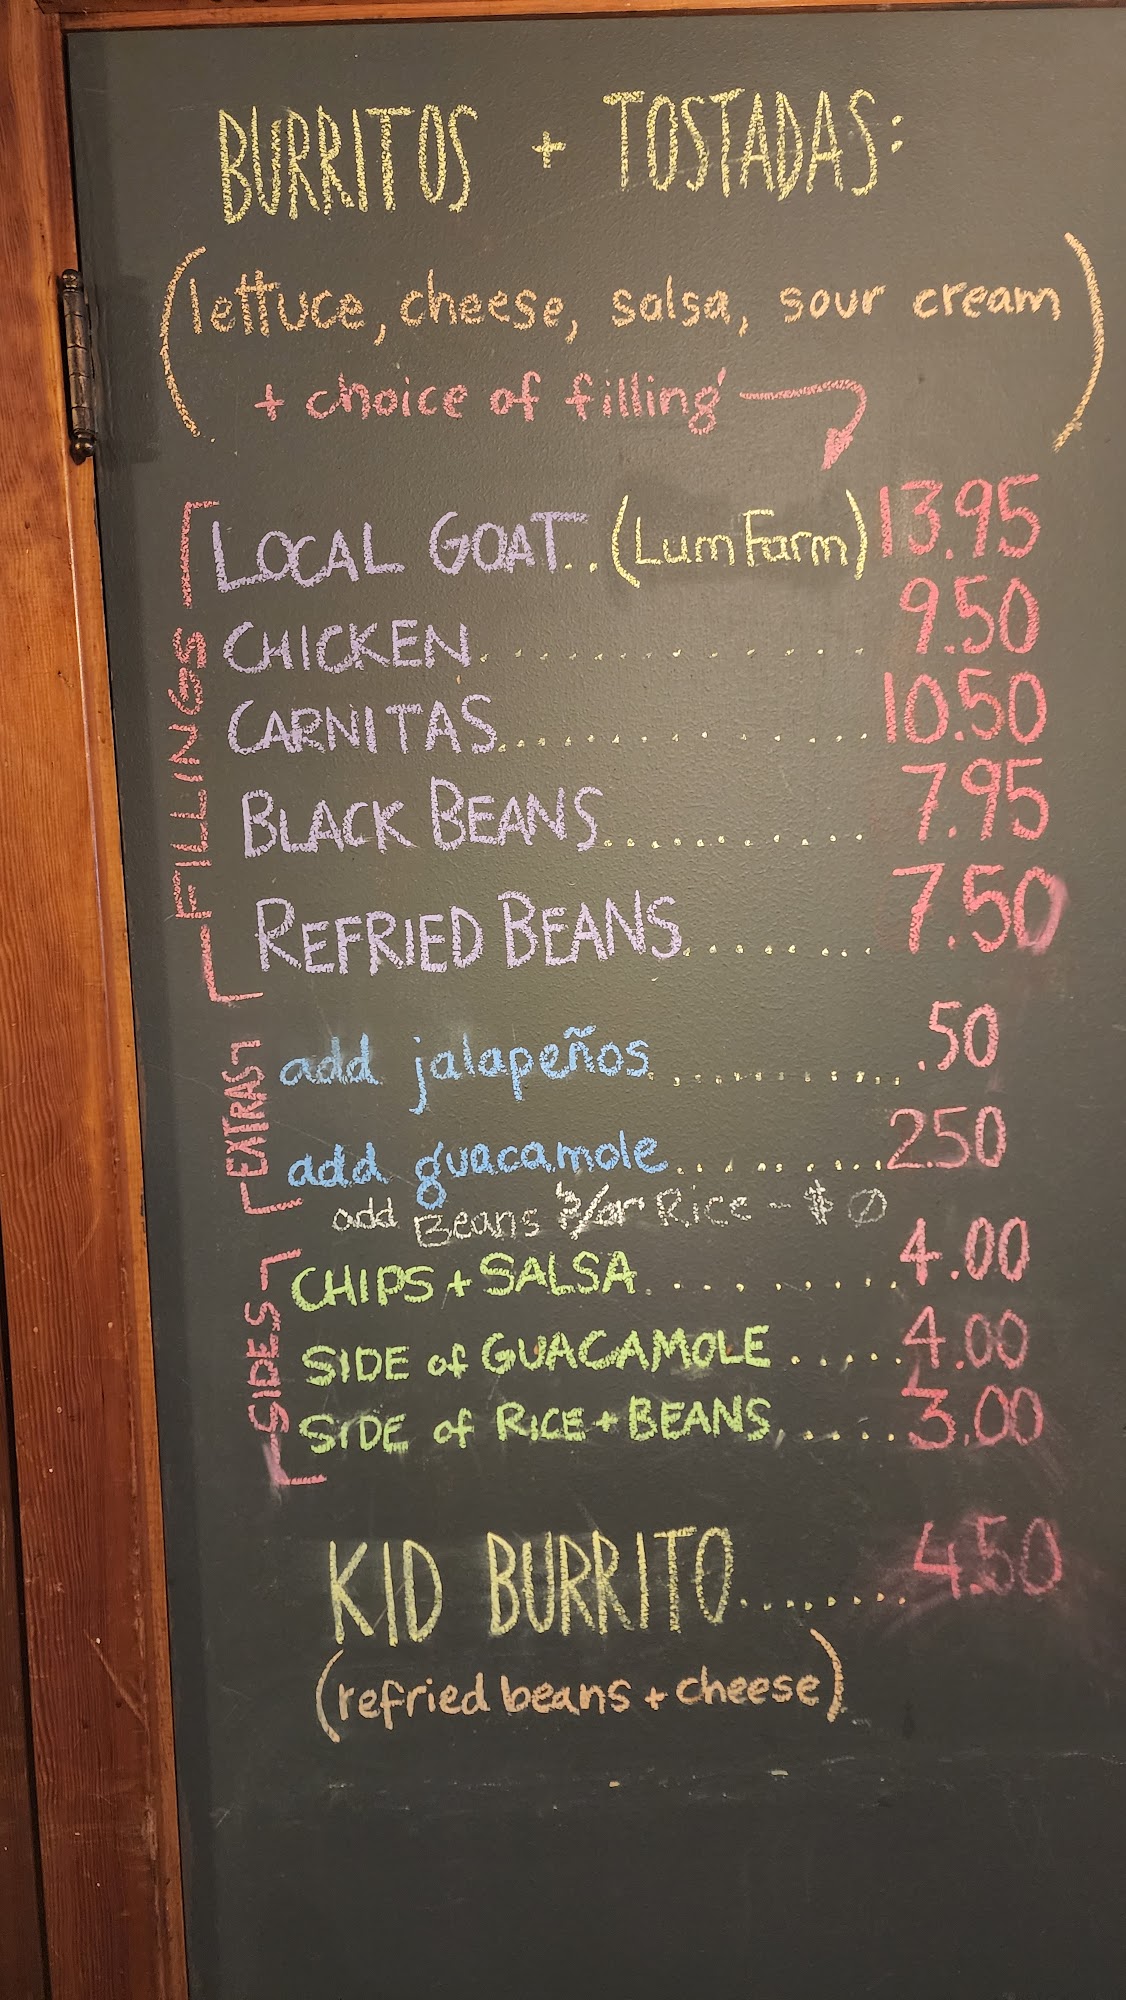 BURRITOS + TOSTADAS:
(lettuce, cheese, salsa, sour cream
+ choice of filling)
FILLINGS
LOCAL GOAT..(Lum Farm) 13.95
CHICKEN.............. 9.50
CARNITAS.............. 10.50
BLACK BEANS........... 7.95
REFRIED BEANS......... 7.50
EXTRAS
add jalapeños............. .50
add guacamole.......... 2.50
add Beans &/or Rice - $0
SIDES
CHIPS + SALSA......... 4.00
SIDE of GUACAMOLE...... 4.00
SIDE of RICE + BEANS...... 3.00
KID BURRITO........ 4.50
(refried beans + cheese)